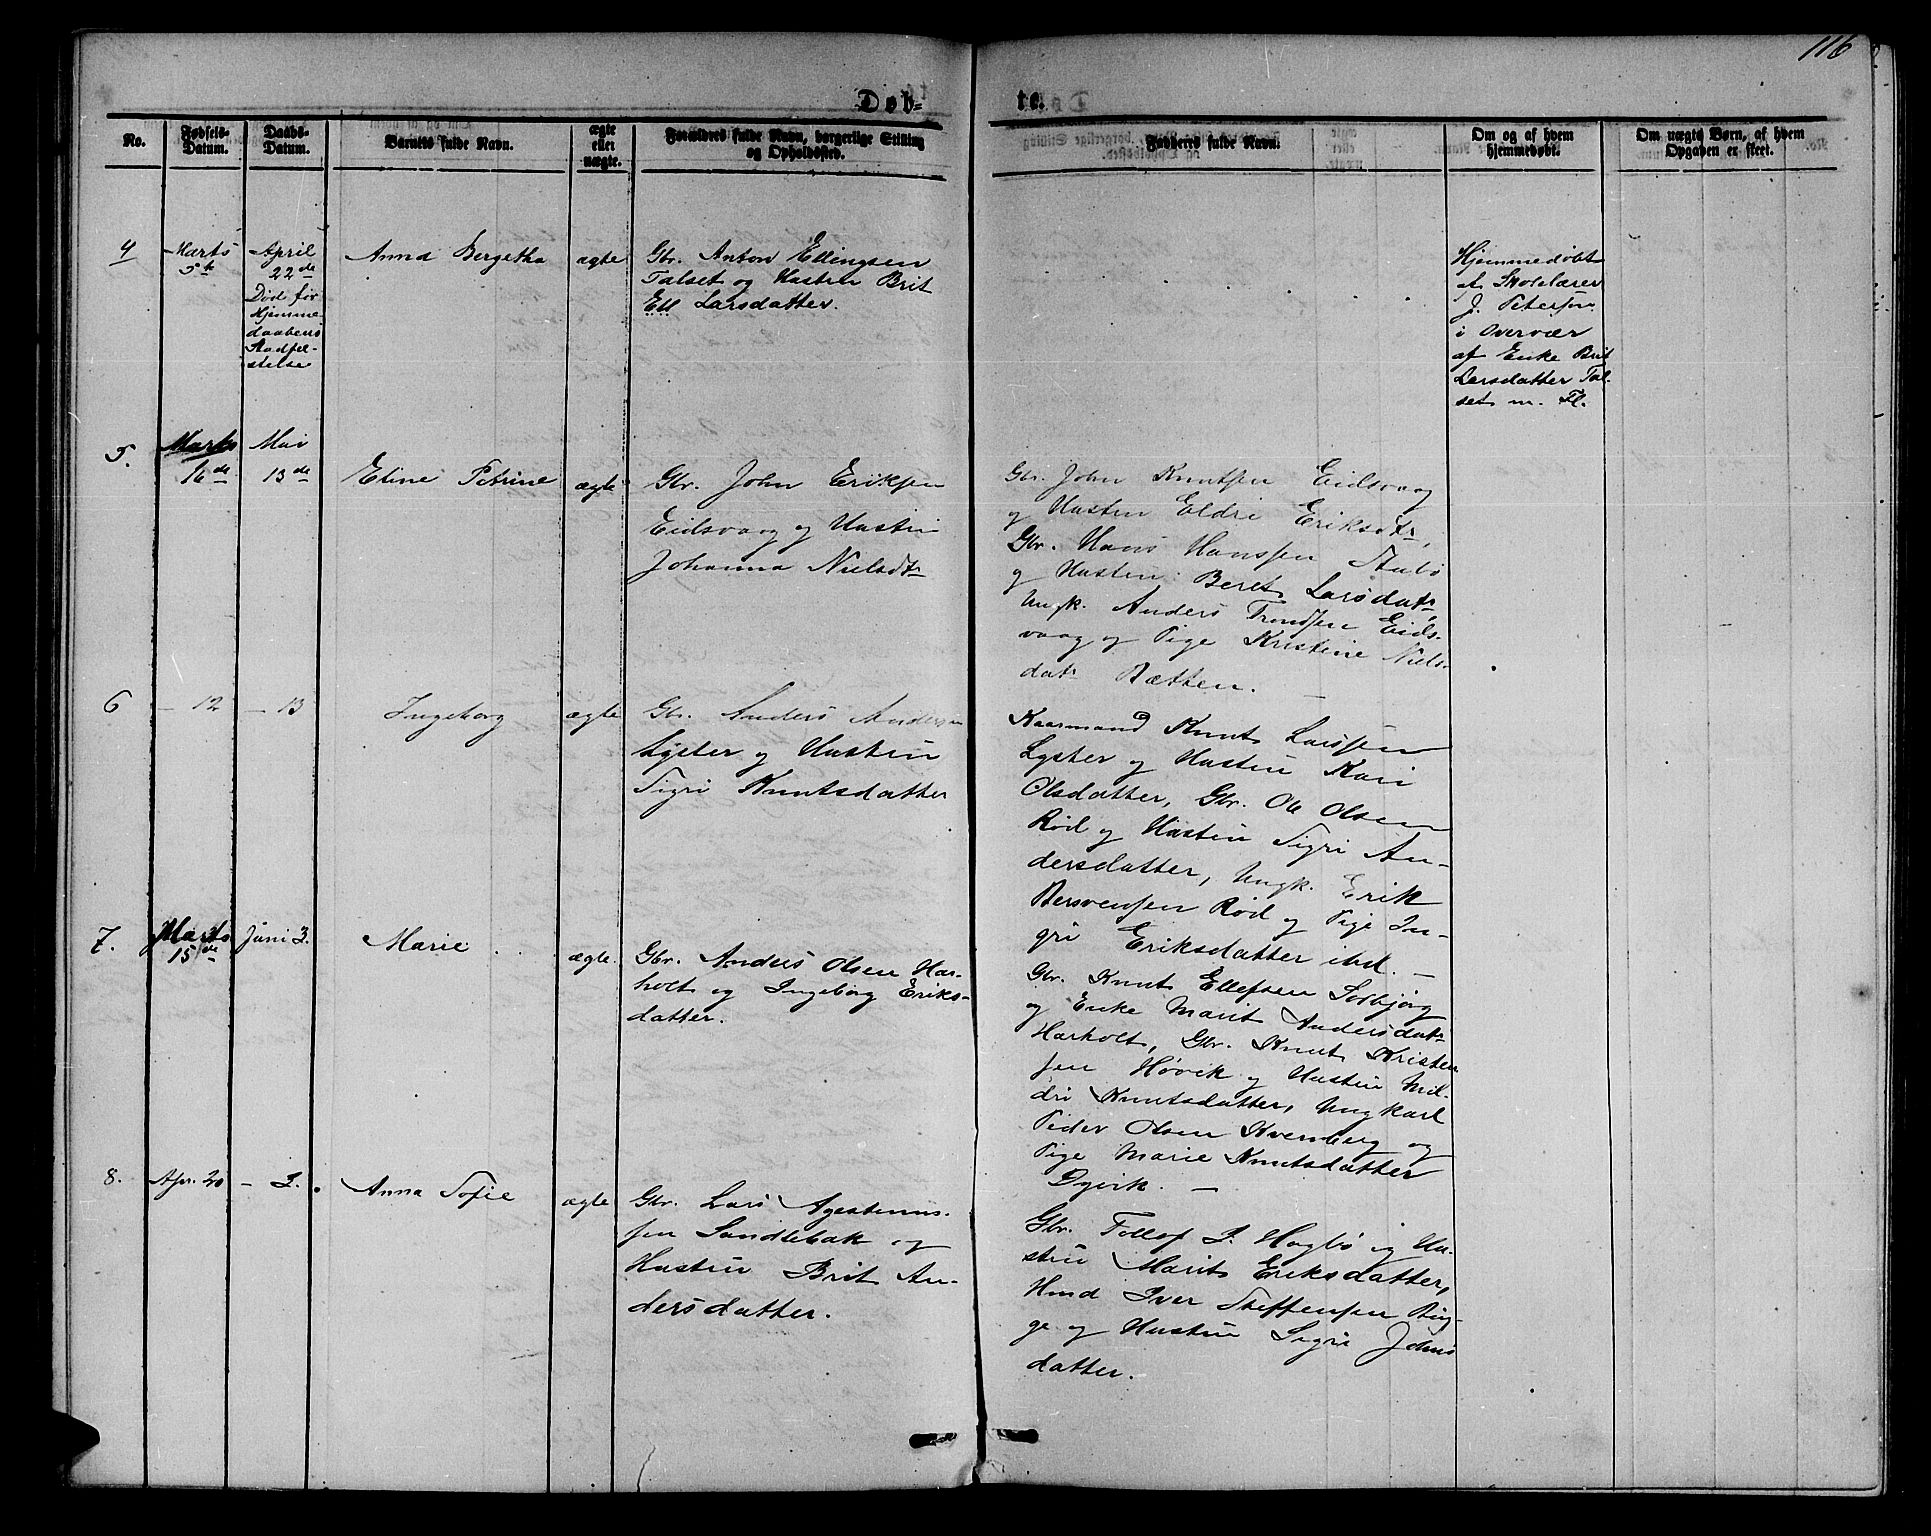 116
Døb=
te.
No.
Fødsels-
Datum.
Daabs-
Datum.
Barnets fulde Navn.
ægte
eller
uægte.
Forældres fulde Navn, borgerlige Stilling
og Opholdssted.
Faddernes fulde Navn.
Om og af hvem
hjemmedøbt.
Om uægte Børn, af hvem
Opgaven er skeet.
4
Marts
5te
April
22de
Død før
Hjemme
daabens
Stadfæ-
stelse
Anna Bergetha
ægte
Gbr. Anton Ellingsen
Talset og Hustru Brit
Ell Larsdatter.
Hjemmedøbt
af Skolelærer
J. Petersen
i Overvær
af Enke Brit
Larsdatter Tal-
set m. Fl.
5.
Marts
16de
Mai
13de
Eline Petrine
ægte
Gbr. John Eriksen
Eidsvaag og Hustru
Johanna Nielsdtr
Gbr. John Knutsen Eidsvaag
og Hustru Eldri Eriksdtr,
Gbr. Hans Hanssen Stubø
og Hustru Beret Larsdatr,
Ungk. Anders Trondsen Eids-
vaag og Pige Kristine Niels-
datr Ratten. —
6
— 12
— 13
Ingeborg
ægte
Gbr. Anders Andersen
Lyster og Hustru
Sigri Knutsdatter
Kaarmand Knut Larssen
Lyster og Hustru Kari
Olsdatter, Gbr. Ole Olsen
Rød og Hustru Sigri An-
dersdatter, Ungk. Erik
Bersvensen Rød og Pige In-
gri Eriksdatter ibd. —
7.
Marts
15de
Juni 3.
Marie
ægte.
Gbr. Anders Olsen Har-
holt og Ingeborg Eriks-
datter.
Gbr. Knut Ellefsen Solbjørg
og Enke Marit Andersdatr
Harholt, Gbr. Knut Kristen
sen Høvik og Hustru Mil-
dri Knutsdatter, Ungkarl
Peder Olsen Kvernberg og
Pige Marie Knutsdatter
Dyvik. —
8.
Apr. 20
— 3.
Anna Sofie
ægte
Gbr. Lars Agestinus-
sen Sandlebak og
Hustru Brit An-
dersdatter.
Gbr. Tollef I. Hagbø og Hu-
stru Marit Eriksdatter,
Hmd Iver Steffensen Bug-
ge og Hustru Sigri Johns
datter.